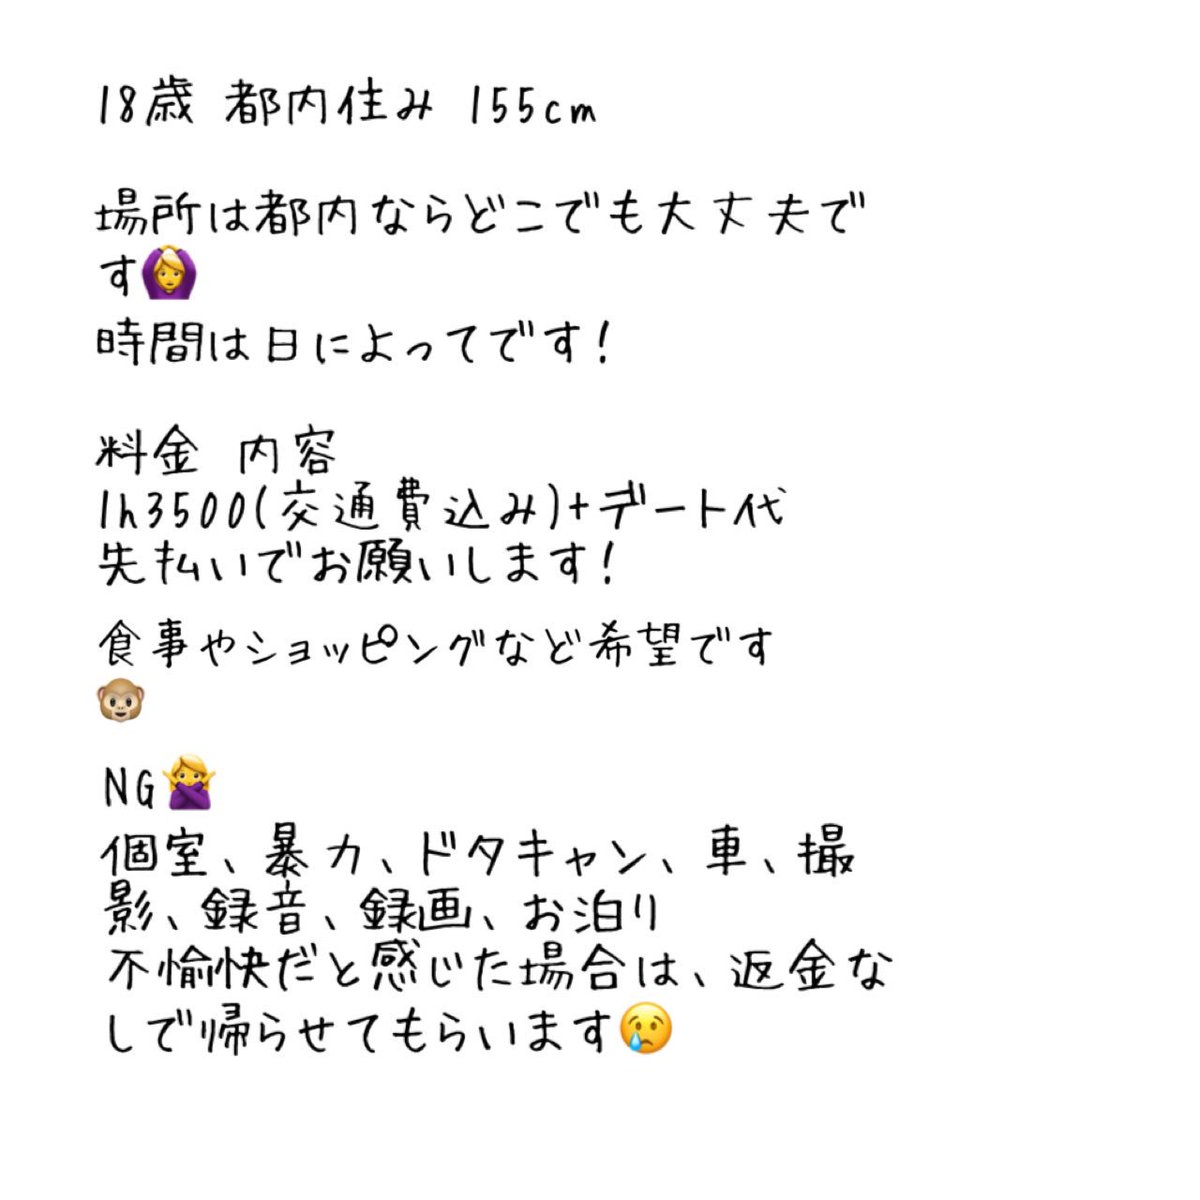 18歳 都内住み 155cm
場所は都内ならどこでも大丈夫で
す🙆‍♀️
時間は日によってです！
料金 内容
1h3500(交通費込み)+デート代
先払いでお願いします！
食事やショッピングなど希望です
🐵
NG🙅‍♀️
個室、暴力、ドタキャン、車、撮
影、録音、録画、お泊り
不愉快だと感じた場合は、返金な
しで帰らせてもらいます😢